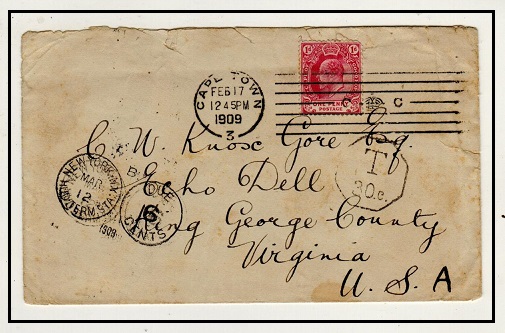 1d 1d
ONE PENNY
POSTAGE
CAPE TOWN
FEB 17
12 45 PM
1909
3
C
C. W. Knox Gore Esq.
Echo Dell
King George County
Virginia
U. S. A
T
30c.
NEW YORK
MAR
12
1909
DUE
6
CENTS